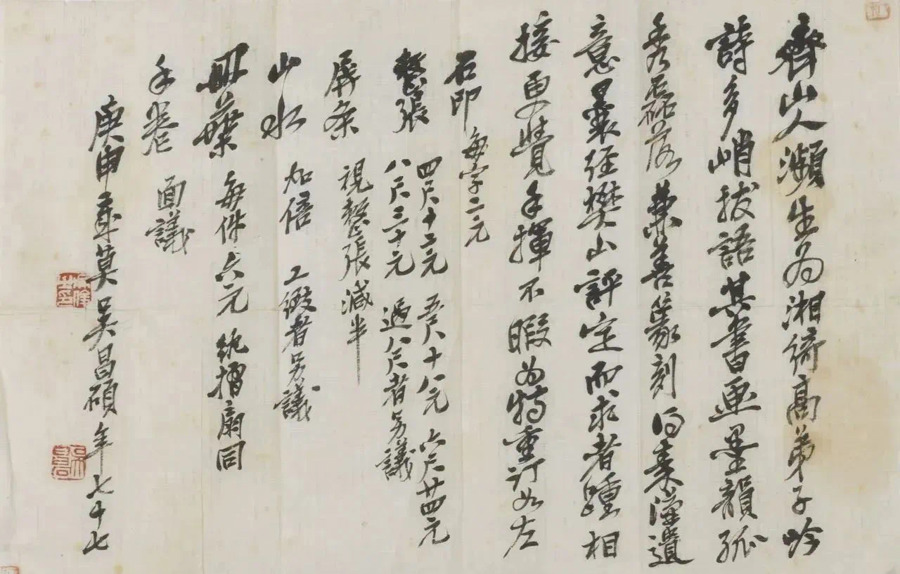 齊山人瀕生為湘綺高弟子吟
詩多峭拔語其書画墨韻孤
秀磊落兼善篆刻得秦漢遺
意曩經樊山評定而求者踵相
接更覺手揮不暇為特重訂如左
石印 每字二元
整張 四尺十二元 五尺十八元 六尺廿四元
八尺三十元 過八尺者另議
屏条 視整張減半
山水 加倍 工緻者另議
册葉 每件六元 紈摺扇同
手卷 面議
庚申歲莫吳昌碩年七十七